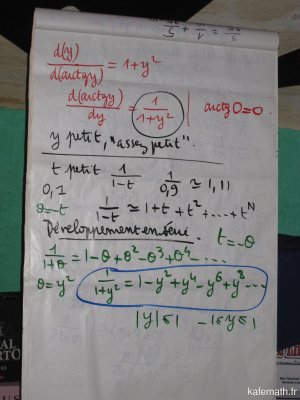 3/25 = 1/4 + 5
d(y)/d(arctgy) = 1+y²
d(arctgy)/dy = 1/(1+y²) | arctg0=0.
y petit, "assez petit".
t petit 1/(1-t) 1/0,9 ≃ 1,11
0,1
θ=-t 1/(1-t) ≃ 1+t+t²+...+t^N
Développement en série. t=-θ
1/(1+θ) = 1-θ+θ²-θ³+θ⁴-....
θ=y² 1/(1+y²) = 1-y²+y⁴-y⁶+y⁸...
|y|≤1 -1≤y≤1
kafemath.fr